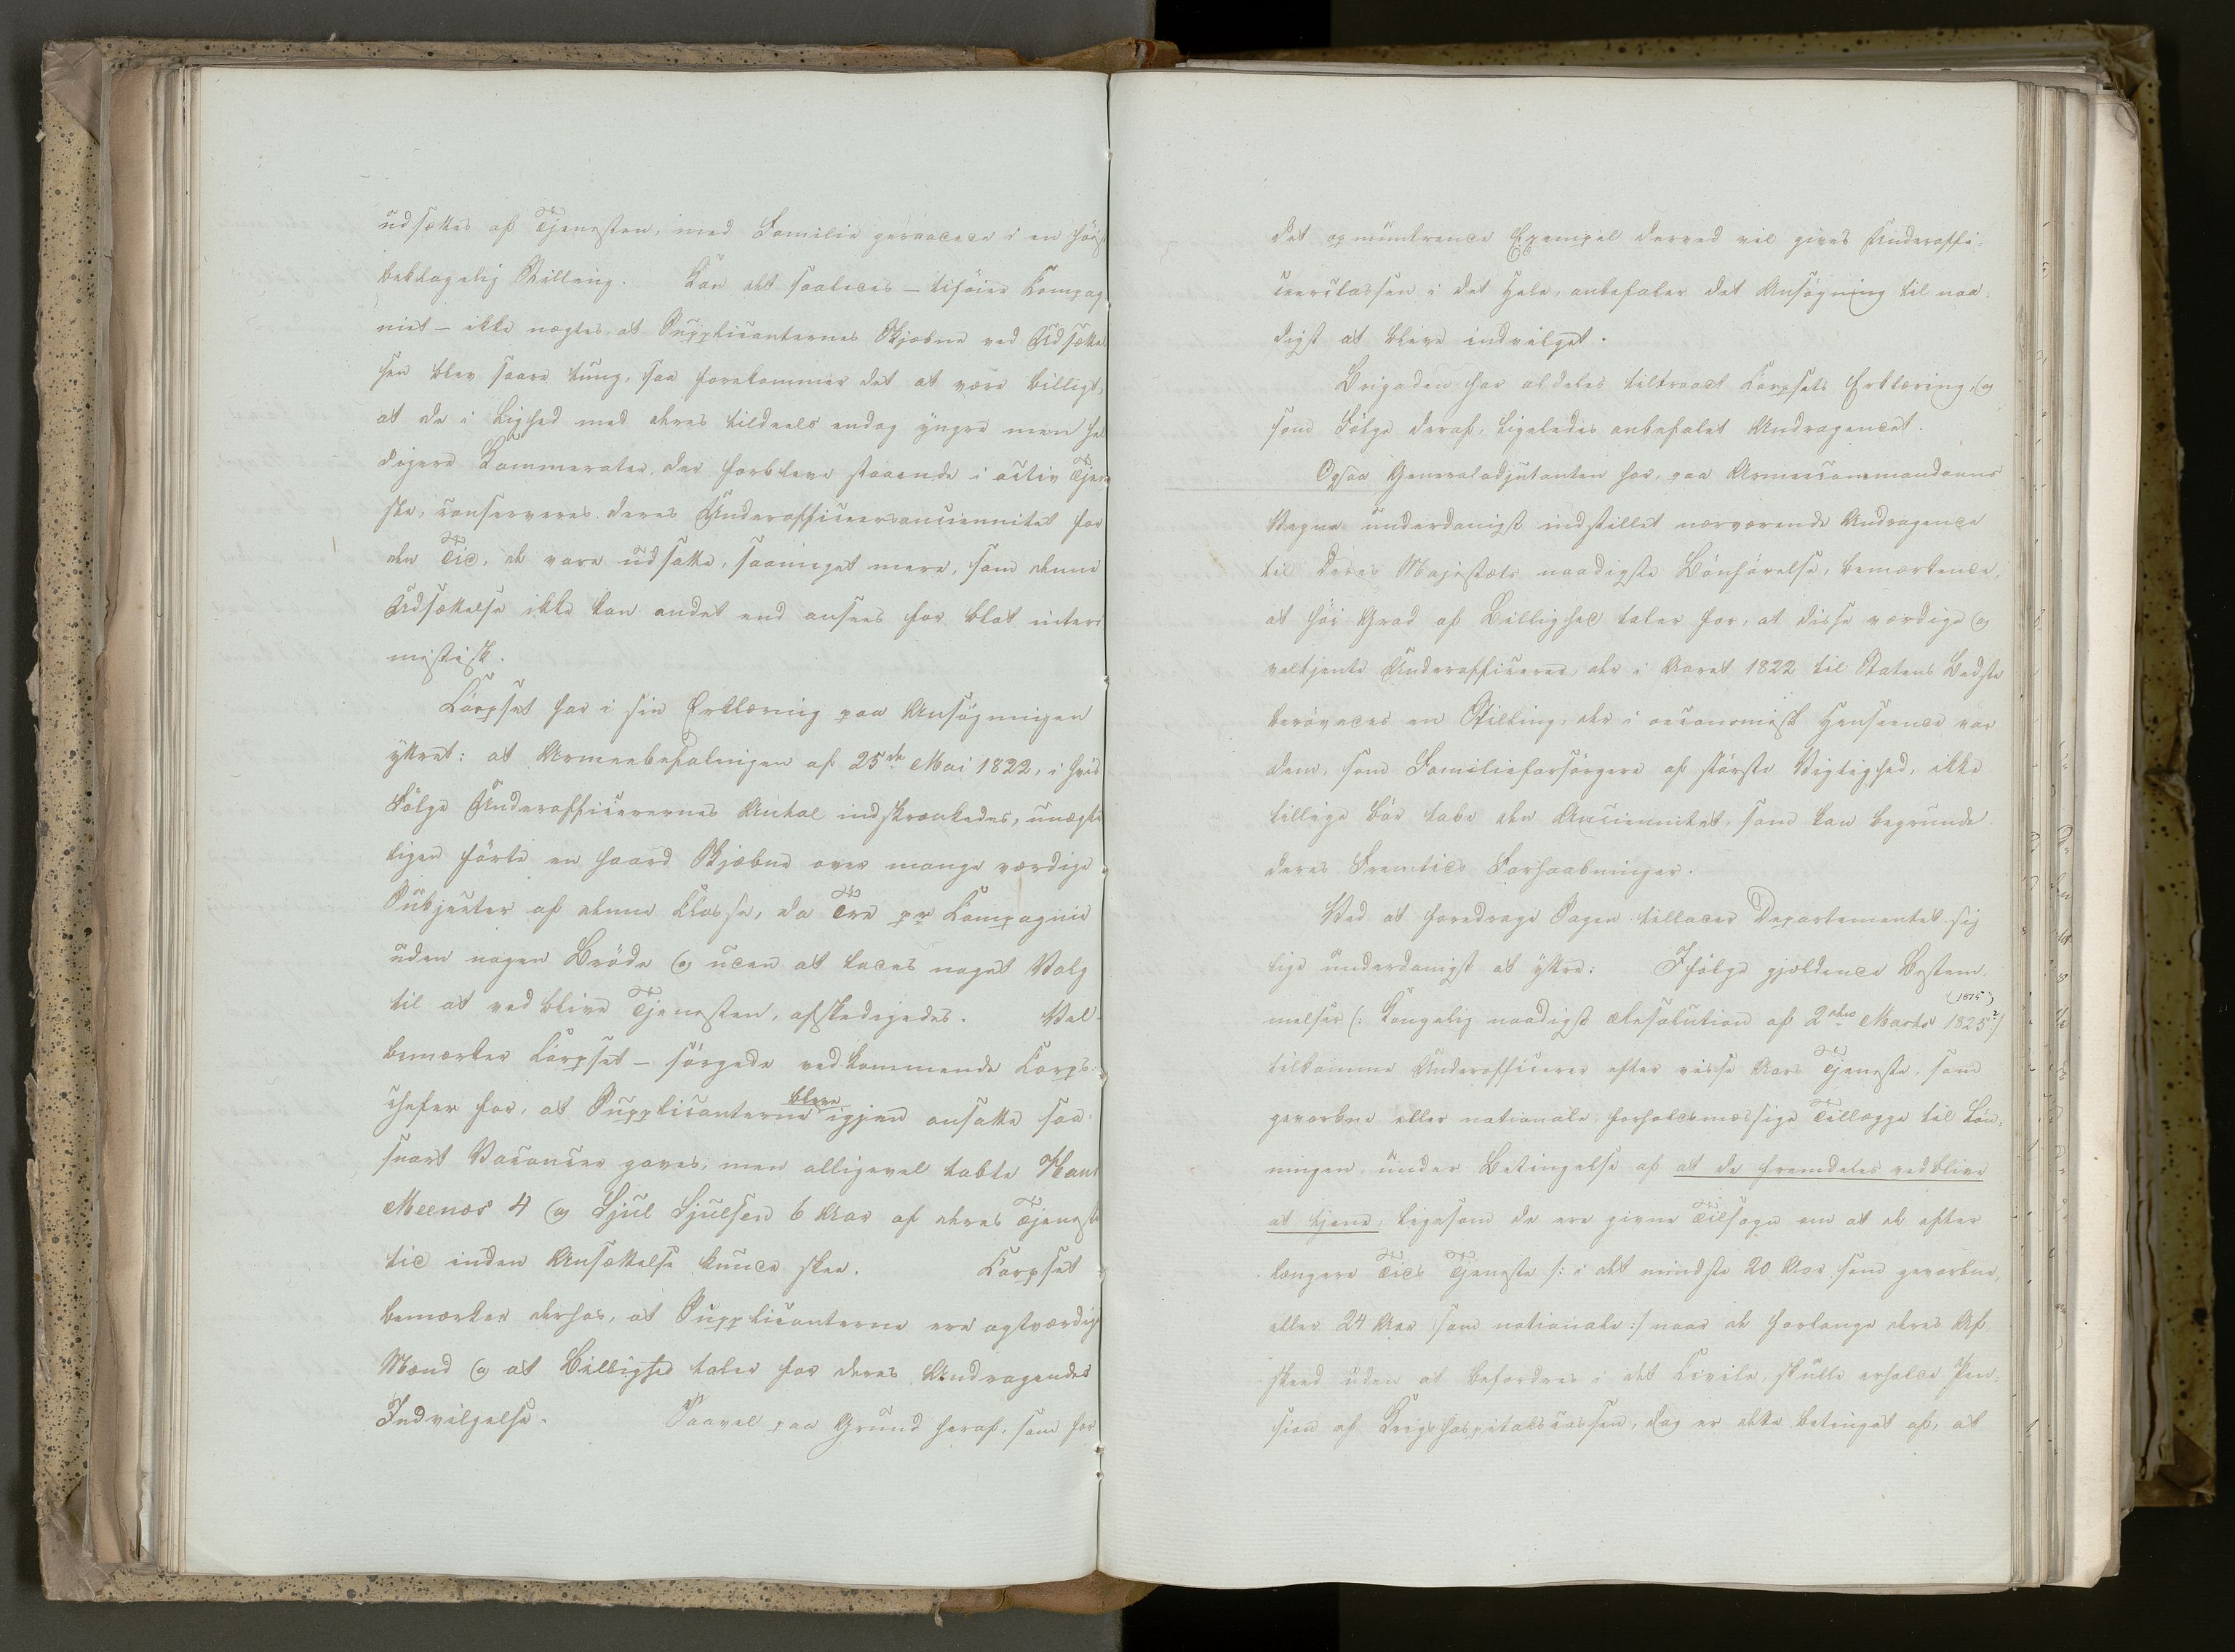 udsættes af Tjenesten, med Familie geraadede i en høist
beklagelig Stilling. Kan det saaledes – tilføier Kompag
niet – ikke nægtes, at Supplicanternes Skjæbne ved Udsættel
sen blev saare tung, saa forekommer det at være billigt,
at de i Lighed med deres tildeels endog yngre men hel
digere Kammerater, der forbleve staaende i activ Tjene
ste, conserveres deres Underofficeersanciennitet for
den Tid, de vare udsatte, saameget mere, som denne
Udsættelse ikke kan andet end ansees for blot interi
mistisk.
Korpset har i sin Erklæring paa Ansøgningen
yttret: at Armeebefalingen af 25de Mai 1822, i hvis
Følge Underofficerernes Antal indskrænkedes, unægte
ligen førte en haard Skjæbne over mange værdige
Subjecter af denne Klasse, da Tre pr Kompagnie
uden nogen Brøde og uden at lades noget Valg
til at vedblive Tjenesten, afskedigedes. Vel-
bemærker Korpset – sørgede vedkommende Korps-
chefer for, at Supplicanterne bleve igjen ansatte saa-
snart Vacancer gaves, men alligevel tabte Hans
Meenæs 4 og Gjul Gjulsen 6 Aar af deres Tjeneste
tid inden Ansættelse kunde skee. Korpset
bemærker derhos, at Supplicanterne ere agtværdige
Mænd og at Billighed taler for deres Andragendes
Indvilgelse. Saavel paa Grund heraf, som for
det opmuntrende Exempel derved vil gives Underoffi-
ceersclassen i det Hele, anbefaler det Ansøgning til naa-
digst at blive indvilget.
Brigaden har aldeles tiltraadt Korpsets Erklæring, og
som Følge deraf, ligeledes anbefalet Andragendet.
Ogsaa Generaladjutanten har, paa Armeecommandoens
Vegne underdanigst indstillet nærværende Andragende
til Deres Majestæts naadigste Bønhørelse, bemærkende,
at høi Grad af Billighed taler for, at disse værdige og
veltjente Underofficerer, der i Aaret 1822 til Statens Bedste
berøvedes en Stilling, der i oeconomisk Henseende var
dem, som Familieforsørgere af største Vigtighed, ikke
tillige bør tabe den Anciennitet, som kan begrunde
deres Fremtids Forhaabninger.
Ved at foredrage Sagen tillader Departementet sig
lige underdanigst at yttre: Ifølge gjældende Bestem-
melser (: Kongelig naadigst Resolution af 2den Marts 1825 (1815)?:)
tilkomme Underofficerer efter visse Aars Tjeneste, som
gevorbne eller nationale, forholdsmæssige Tillægge til Løn-
ningen, under Betingelse af at de fremdeles vedblive
at tjene, ligesom de ere givne Tilsagn om at de efter
længere Tids Tjeneste /: i det mindste 20 Aar som gevorbne,
eller 24 Aar som nationale :/ naar de forlange deres Af
skeed uden at befordres i det Civile, skulle erholde Pen-
sion af Krigshospitalscassen, dog er dette betinget af, at